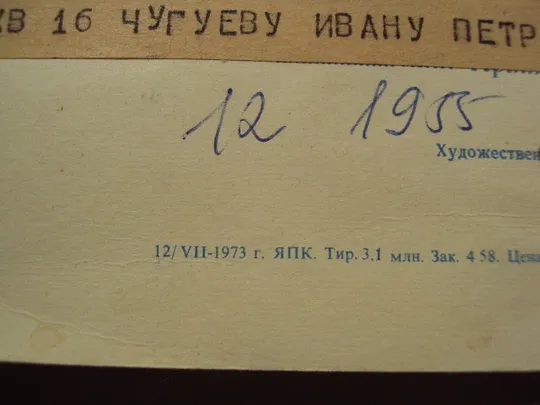 КВ 16 ЧУГУЕВУ ИВАНУ ПЕТР
12 1955
Художествен
12/VII-1973 г. ЯПК. Тир. 3.1 млн. Зак. 458. Цена